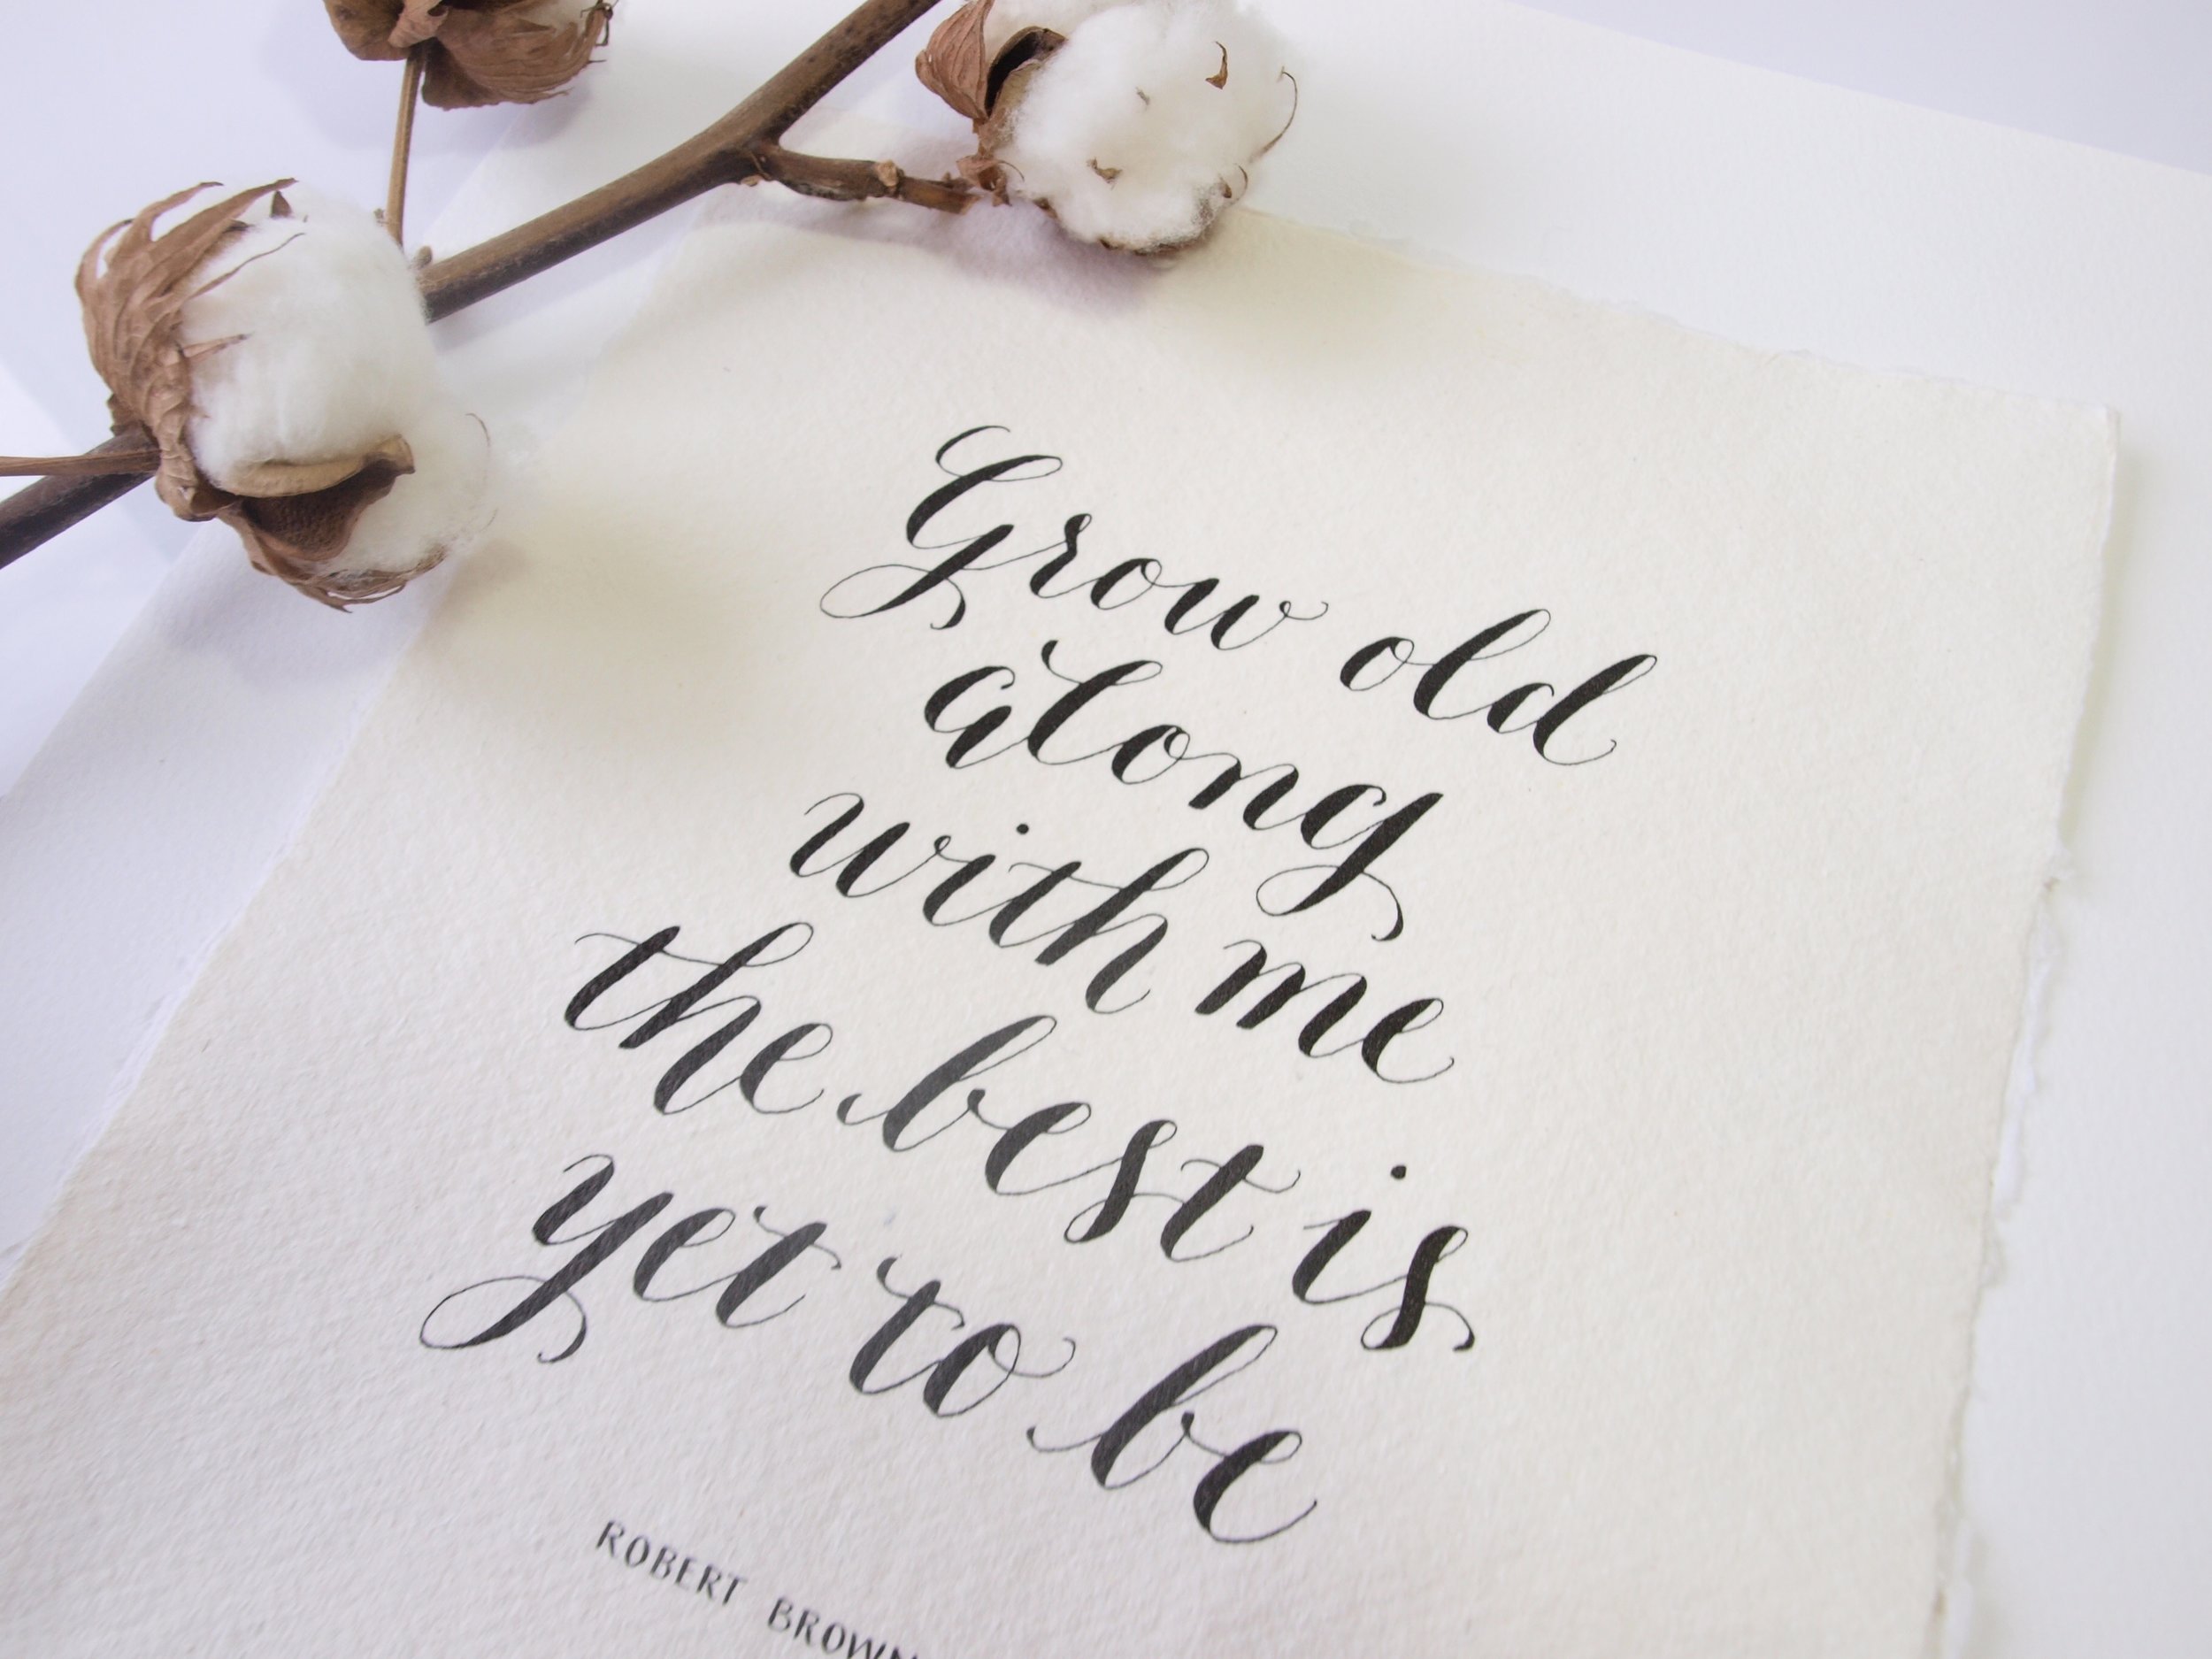 Grow old
along
with me
the best is
yet to be
ROBERT BROWN